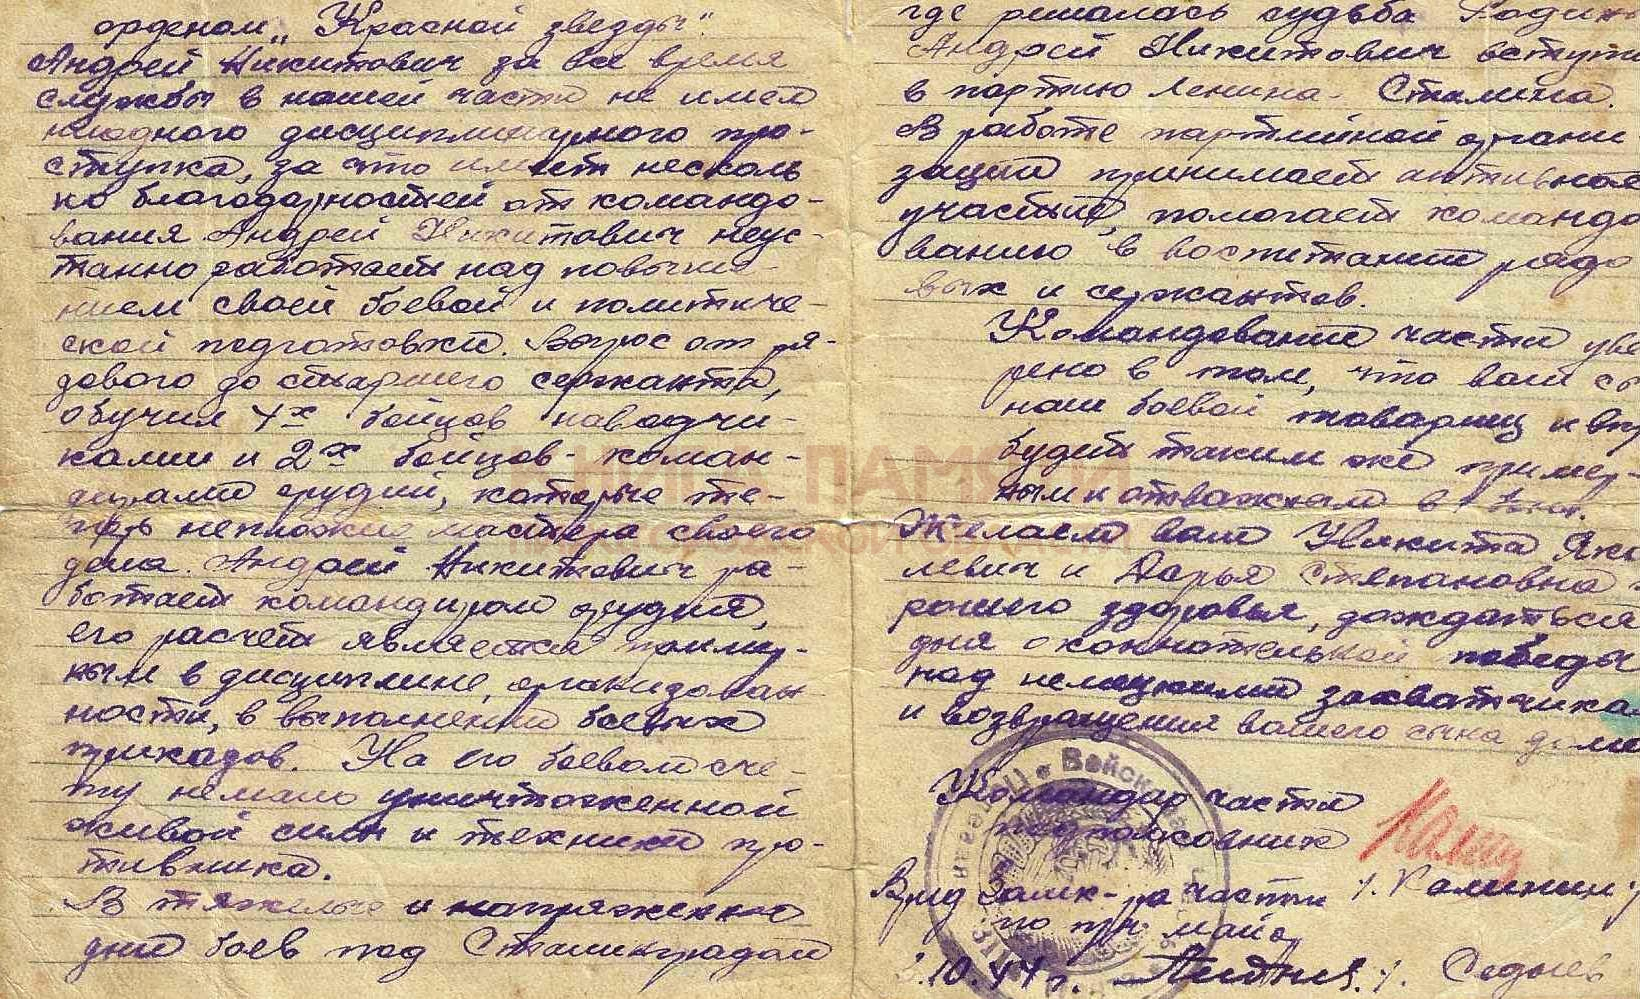 орденом „Красной звезды".
Андрей Никитович за все время
службы в нашей части не имел
ниодного дисциплинарного про-
ступка, за что имеет несколь
ко благодарностей от командо-
вания Андрей Никитович неус-
танно работает над повыше-
нием своей боевой и политиче
ской подготовки. Вырос от ря-
дового до старшего сержанта,
обучил 4х бойцов наводчи-
ками и 2х бойцов-коман-
дирами орудий, которые те-
перь неплохие мастера своего
дела. Андрей Никитович ра-
ботает командиром орудия,
его расчет является пример-
ным в дисциплине, организован
ности, в выполнении боевых
приказов. На его боевом сче-
ту немало уничтоженной
живой силы и техники про-
тивника.
В тяжелые и напряженные
дни боев под Сталинградом
где решалась судьба Родины
Андрей Никитович вступи
в партию Ленина-Сталина.
В работе партийной органи
зации принимает активное
участие, помогает командо
ванию в воспитании рядо
вых и сержантов.
Командование части уве
рено в том, что ваш сы
наш боевой товарищ и впр
будет таким же пример-
ным и отважным в
Желаем вам Никита Яко
левич и Дарья Степановна
рошего здоровья, дождаться
дня окончательной победы
над немецкими захватчика
и возвращения вашего сына дом
Командир части
подполковник
/. Калинин /
Врид Замк-ра части
по п/ч майор
10.44 г. /. Седнев
Войсковая
КНИГА ПАМЯТИ
НИЖЕГОРОДСКОЙ ОБЛАСТИ